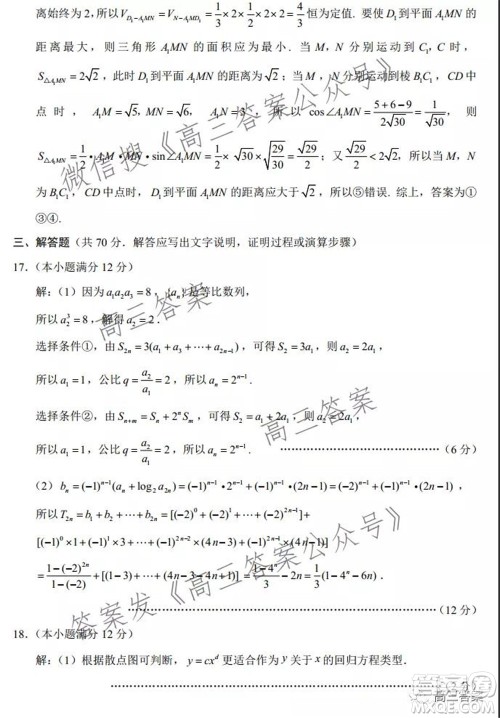 离始终为2,所以V_{D_1-A_1MN}=V_{N-A_1MD_1}=\frac{1}{3}×2×\frac{1}{2}×2×2=\frac{4}{3}恒为定值. 要使D_1到平面A_1MN的
距离最大,则三角形A_1MN的面积应为最小. 当M,N分别运动到C_1,C时,
S_{△A_1MN}=2\sqrt{2},此时D_1到平面A_1MN的距离为\sqrt{2};当M,N分别运动到棱B_1C_1,CD中
点时,A_1M=\sqrt{5},MN=\sqrt{6},A_1N=3.所以cos∠A_1MN=\frac{5+6-9}{2\sqrt{30}}=\frac{1}{\sqrt{30}},则
S_{△A_1MN}=\frac{1}{2}·A_1M·MN·sin∠A_1MN=\frac{1}{2}×\sqrt{30}×\sqrt{\frac{29}{30}}=\frac{\sqrt{29}}{2};又\frac{\sqrt{29}}{2}<2\sqrt{2},所以当M,N
为B_1C_1,CD中点时,D_1到平面A_1MN的距离应大于\sqrt{2},所以⑤错误. 综上,答案为①
③④.
三、解答题(共70分.解答应写出文字说明,证明过程或演算步骤)
17.(本小题满分12分)
解:(1)因为a_1a_2a_3=8,{a_n}是等比数列,
所以a_2^3=8,解得a_2=2.
选择条件①,由S_{2n}=3(a_1+a_3+⋯+a_{2n-1}),可得S_2=3a_1,则a_2=2a_1,
所以a_1=1,公比q=\frac{a_2}{a_1}=2,所以a_n=2^{n-1}.
选择条件②,由S_{n+m}=S_n+2^nS_m,可得S_2=S_1+2a_1,则a_2=2a_1,
所以a_1=1,公比q=\frac{a_2}{a_1}=2,所以a_n=2^{n-1}.⋯⋯⋯⋯⋯⋯⋯⋯⋯⋯(6分)
(2)b_n=(-1)^{n-1}(a_n+log_2a_{2n})=(-1)^{n-1}·2^{n-1}+(-1)^{n-1}(2n-1)=(-2)^{n-1}+(-1)^{n-1}(2n-1),
所以T_{2n}=b_1+b_2+⋯+b_{2n}=[(-2)^0+(-2)^1+⋯+(-2)^{2n-1}]+
[(-1)^0×1+(-1)^1×3+⋯+(-1)^{2n-2}(4n-3)+(-1)^{2n-1}(4n-1)]
=\frac{1-(-2)^{2n}}{1-(-2)}+[(1-3)+⋯+(4n-3-4n+1)]=\frac{1-4^n}{3}-2n=\frac{1}{3}(1-4^n-6n).
⋯⋯⋯⋯⋯⋯⋯⋯⋯⋯(12分)
18.(本小题满分12分)
解:(1)根据散点图可判断,y=cx^d更适合作为y关于x的回归方程类型.
微信搜《高三答案公众号》
高三答案
高三答案
答案发《高三答案公众号》
高三答案